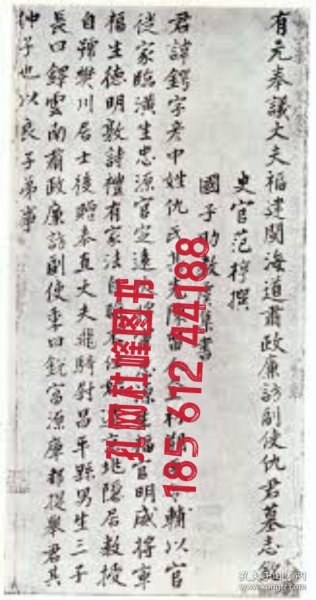 有元奉議大夫福建閩海道肅政廉訪副使仇君墓志
史官范梈撰
國子助教書
君諱鍔字彥中姓仇氏其先陳留輔以官
從家臨潢生忠源官定遠大將軍源生福官明威將軍
福生德明敦詩禮有家法地隱居教授
自號樊川居士後贈奉直大夫飛騎尉昌平縣男生三子
長曰鐸雲南肅政廉訪副使季曰銳富源庫都提舉君其
仲子也以良子弟事
孔网杜峰图书
185 612 44188
孔夫子旧书网